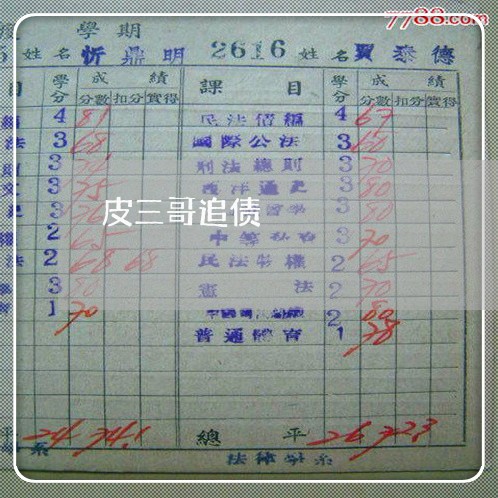 7788.com
學期
姓名 忻鼎明 2616 姓名 賈泰德
目 學分 成績 課目 學分 成績
分數 扣分 實得 分數 扣分 實得
4 81 民法債編 4 67
法 3 68 國際公法 3 60
3 刑法總則 3 70
3 75 西洋通史 3 80
3 3 80
2 65 3 70
法 2 68 68 民法物權 2 65
3 80 憲法 2 70
1 70 2 80
普通體育 1 78
皮三哥追债
平 24 74.1 總平 26 72.3
系 法律學系